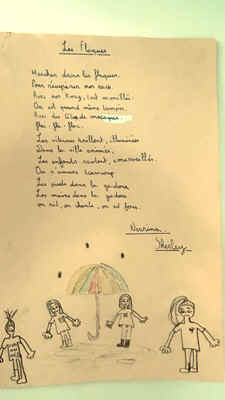 Les Flaques
Marcher dans les flaques.
Pour récupérer nos sacs.
Avec nos King, tout mouillés.
On est quand même tempés.
Avec des
Flic, flic, floc.
Les vitrines brillent, illuminées
Dans la ville animée,
Les enfants sautent, émerveillés.
On s'amuse beaucoup
Les pieds dans la gadoue
Les mains dans la gadoue
on rit, on chante, on est fous.
Nerrina
Shirley